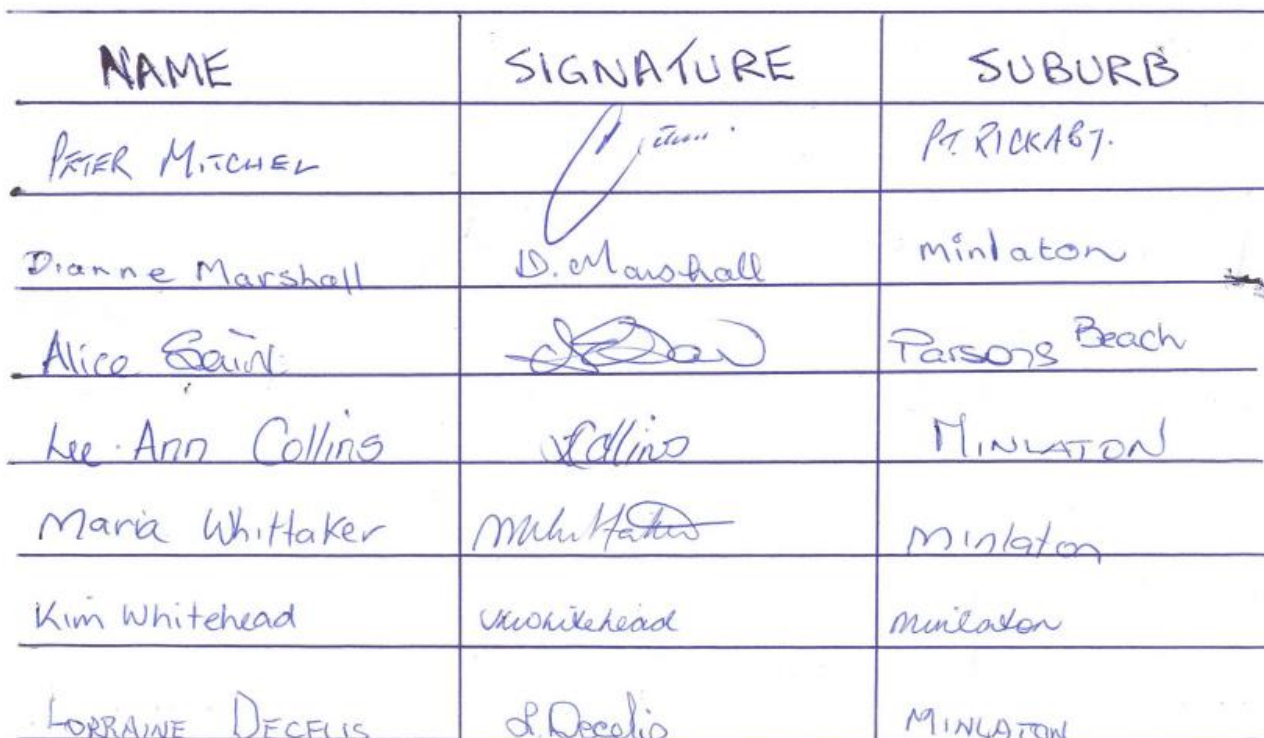 NAME SIGNATURE SUBURB
PETER MITCHEL PT. RICKABY.
Dianne Marshall D. Marshall minlaton
Alice Parsons Beach
Lee-Ann Collins Collins MINLATON
Maria Whittaker MWhittaker Minlaton
Kim Whitehead KWhitehead minlaton
LORRAINE DECELIS L. Decelis MINLATON